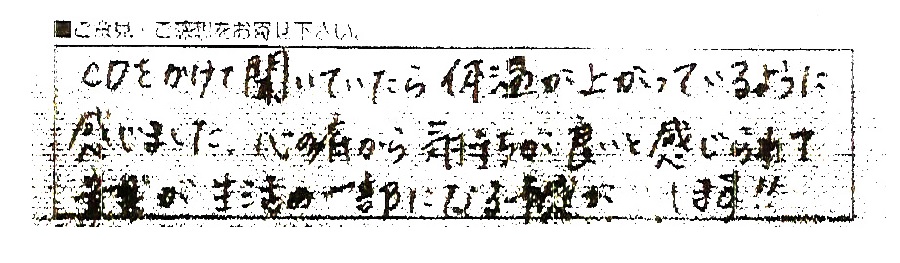 ■ご意見・ご感想をお寄せ下さい。
CDをかけて聞いていたら体温が上がっているように
感じました。心の奥から気持ちが良いと感じられて
音楽が生活の一部になる予感が します!!